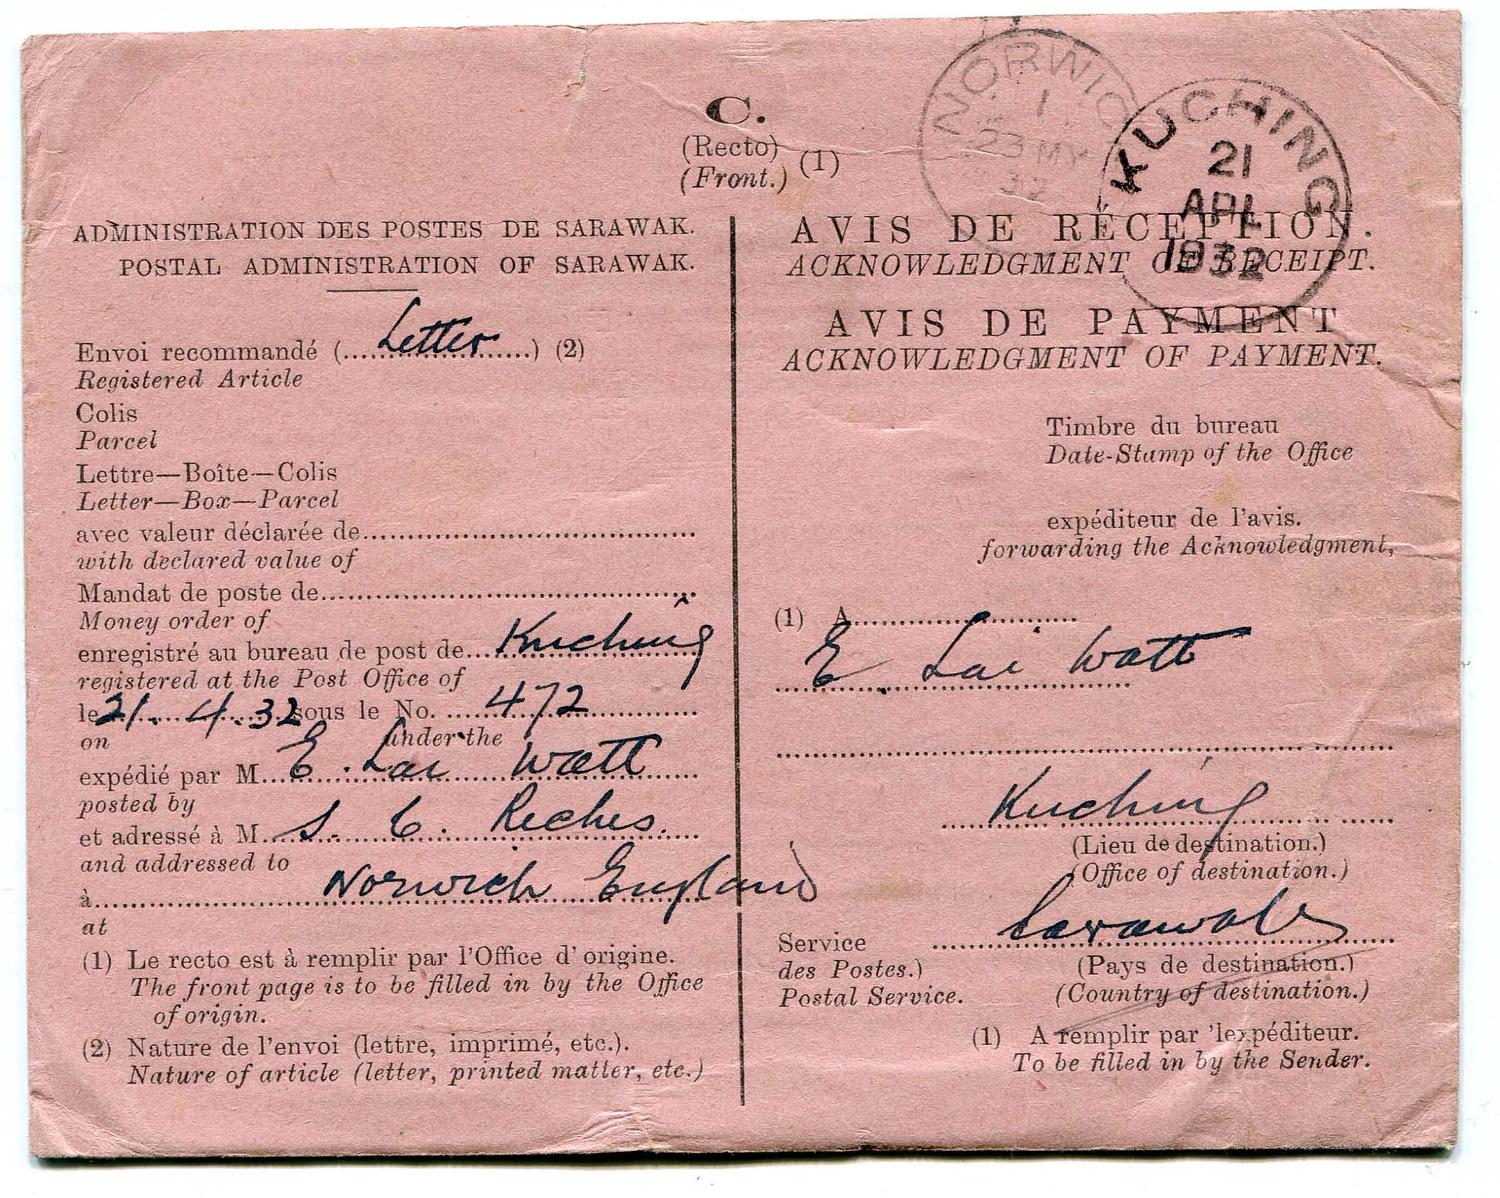 C.
(Recto)
(Front.)
(1)
NORWIC
1
23 MY
32
KUCHING
21
APL
1932
ADMINISTRATION DES POSTES DE SARAWAK.
POSTAL ADMINISTRATION OF SARAWAK.
Envoi recommandé (....Letter....) (2)
Registered Article
Colis
Parcel
Lettre—Boîte—Colis
Letter—Box—Parcel
avec valeur déclarée de
with declared value of
Mandat de poste de
Money order of
enregistré au bureau de post de Kuching
registered at the Post Office of
le 21. 4. 32 sous le No. 472
on under the
expédié par M. E. Lai Watt
posted by
et adressé à M. S. C. Reches.
and addressed to
à Norwich England
at
(1) Le recto est à remplir par l'Office d'origine.
The front page is to be filled in by the Office
of origin.
(2) Nature de l'envoi (lettre, imprimé, etc.).
Nature of article (letter, printed matter, etc.)
AVIS DE RÉCEPTION.
ACKNOWLEDGMENT OF RECEIPT.
AVIS DE PAYMENT
ACKNOWLEDGMENT OF PAYMENT.
Timbre du bureau
Date-Stamp of the Office
expéditeur de l'avis.
forwarding the Acknowledgment,
(1) A
E. Lai Watt
Kuching
(Lieu de destination.)
(Office of destination.)
Sarawak
Service
des Postes.)
Postal Service.
(Pays de destination.)
(Country of destination.)
(1) A remplir par 'lexpéditeur.
To be filled in by the Sender.